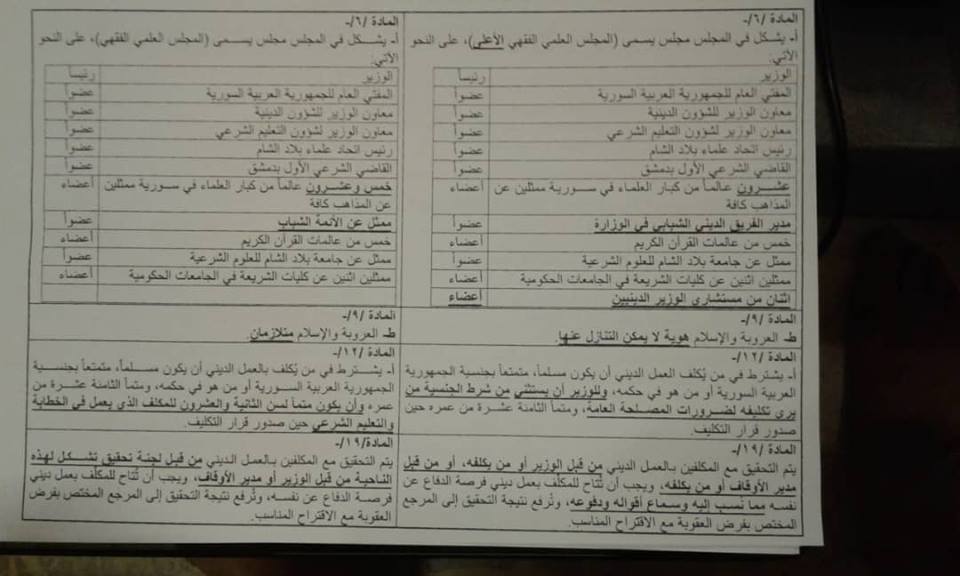 المادة /٦/-
أ- يشكل في المجلس مجلس يسمى (المجلس العلمي الفقهي الأعلى)، على النحو
الآتي:
الوزير رئيساً
المفتي العام للجمهورية العربية السورية عضواً
معاون الوزير للشؤون الدينية عضواً
معاون الوزير لشؤون التعليم الشرعي عضواً
رئيس اتحاد علماء بلاد الشام عضواً
القاضي الشرعي الأول بدمشق عضواً
عشرون عالماً من كبار العلماء في سورية ممثلين عن أعضاء
المذاهب كافة
مدير الفريق الديني الشبابي في الوزارة عضواً
خمس من عالمات القرآن الكريم أعضاء
ممثل عن جامعة بلاد الشام للعلوم الشرعية عضواً
ممثلين اثنين عن كليات الشريعة في الجامعات الحكومية أعضاء
اثنان من مستشاري الوزير الدينيين أعضاء
المادة /٩/-
ط- العروبة والإسلام هوية لا يمكن التنازل عنها.
المادة /١٢/-
أ- يشترط في من يُكلف العمل الديني أن يكون مسلماً، متمتعاً بجنسية الجمهورية
العربية السورية أو من هو في حكمه، وللوزير أن يستثني من شرط الجنسية من
يرى تكليفه لضرورات المصلحة العامة، ومتماً الثامنة عشرة من عمره حين
صدور قرار التكليف.
المادة /١٩/-
يتم التحقيق مع المكلفين بالعمل الديني من قبل الوزير أو من يكلفه، أو من قبل
مدير الأوقاف أو من يكلفه، ويجب أن تُتاح للمكلف بعمل ديني فرصة الدفاع عن
نفسه مما نُسب إليه وسماع أقواله ودفوعه، وتُرفع نتيجة التحقيق إلى المرجع
المختص بفرض العقوبة مع الاقتراح المناسب.
المادة /٦/-
أ- يشكل في المجلس مجلس يسمى (المجلس العلمي الفقهي)، على النحو
الآتي:
الوزير رئيساً
المفتي العام للجمهورية العربية السورية عضواً
معاون الوزير للشؤون الدينية عضواً
معاون الوزير لشؤون التعليم الشرعي عضواً
رئيس اتحاد علماء بلاد الشام عضواً
القاضي الشرعي الأول بدمشق عضواً
خمس وعشرون عالماً من كبار العلماء في سورية ممثلين أعضاء
عن المذاهب كافة
ممثل عن الأئمة الشباب عضواً
خمس من عالمات القرآن الكريم أعضاء
ممثل عن جامعة بلاد الشام للعلوم الشرعية عضواً
ممثلين اثنين عن كليات الشريعة في الجامعات الحكومية أعضاء
المادة /٩/-
ط- العروبة والإسلام متلازمان.
المادة /١٢/-
أ- يشترط في من يُكلف بالعمل الديني أن يكون مسلماً، متمتعاً بجنسية
الجمهورية العربية السورية أو من هو في حكمه، ومتماً الثامنة عشرة من
عمره وأن يكون متماً لسن الثانية والعشرون للمكلف الذي يعمل في الخطابة
والتعليم الشرعي حين صدور قرار التكليف.
المادة/١٩/-
يتم التحقيق مع المكلفين بالعمل الديني من قبل لجنة تحقيق تشكل لهذه
الناحية من قبل الوزير أو مدير الأوقاف، ويجب أن تُتاح للمكلف بعمل ديني
فرصة الدفاع عن نفسه، وتُرفع نتيجة التحقيق إلى المرجع المختص بفرض
العقوبة مع الاقتراح المناسب.